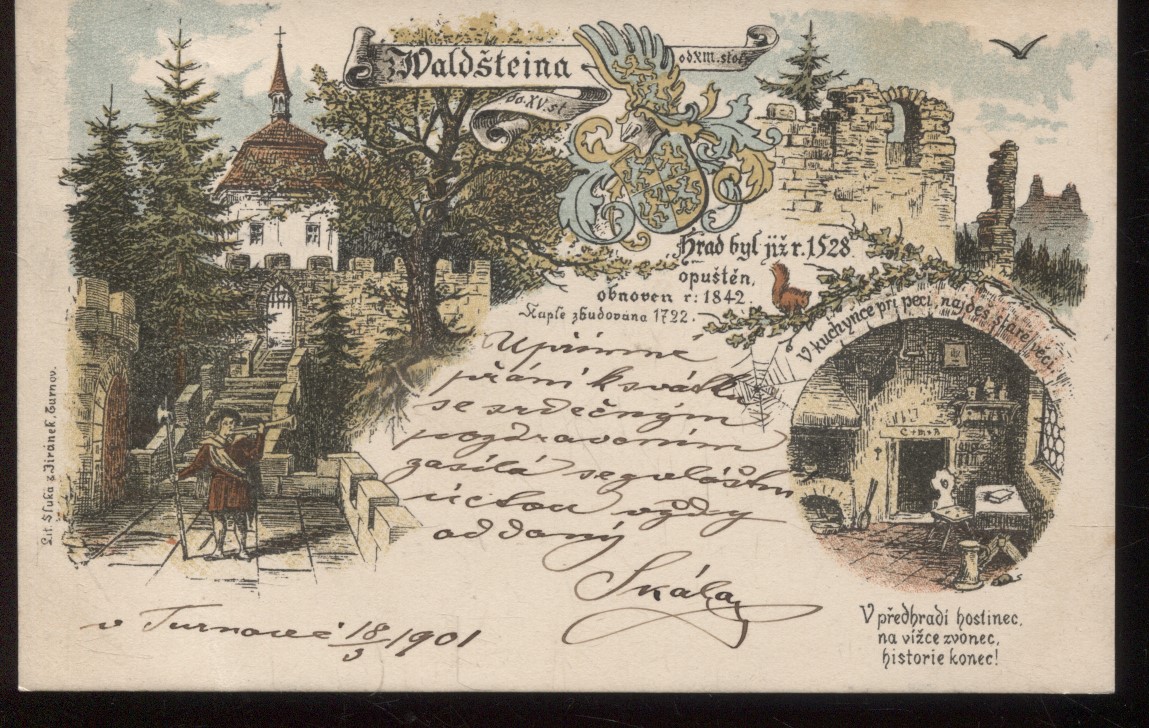 Z Waldšteina
od XIII. stol.
do XV. st.
Hrad byl již r. 1528
opuštěn,
obnoven r: 1842.
Kaple zbudována 1722.
V kuchyňce při peci, najdeš staré
C+M+B
Upřímné
přání k svátku
se srdečným
pozdravením
zasílá se zvláštní
úctou vždy
oddaný
Skála
v Turnově 18/3 1901
V předhradí hostinec,
na vížce zvonec,
historie konec!
Lit. Sluka z Jiránek, Turnov.